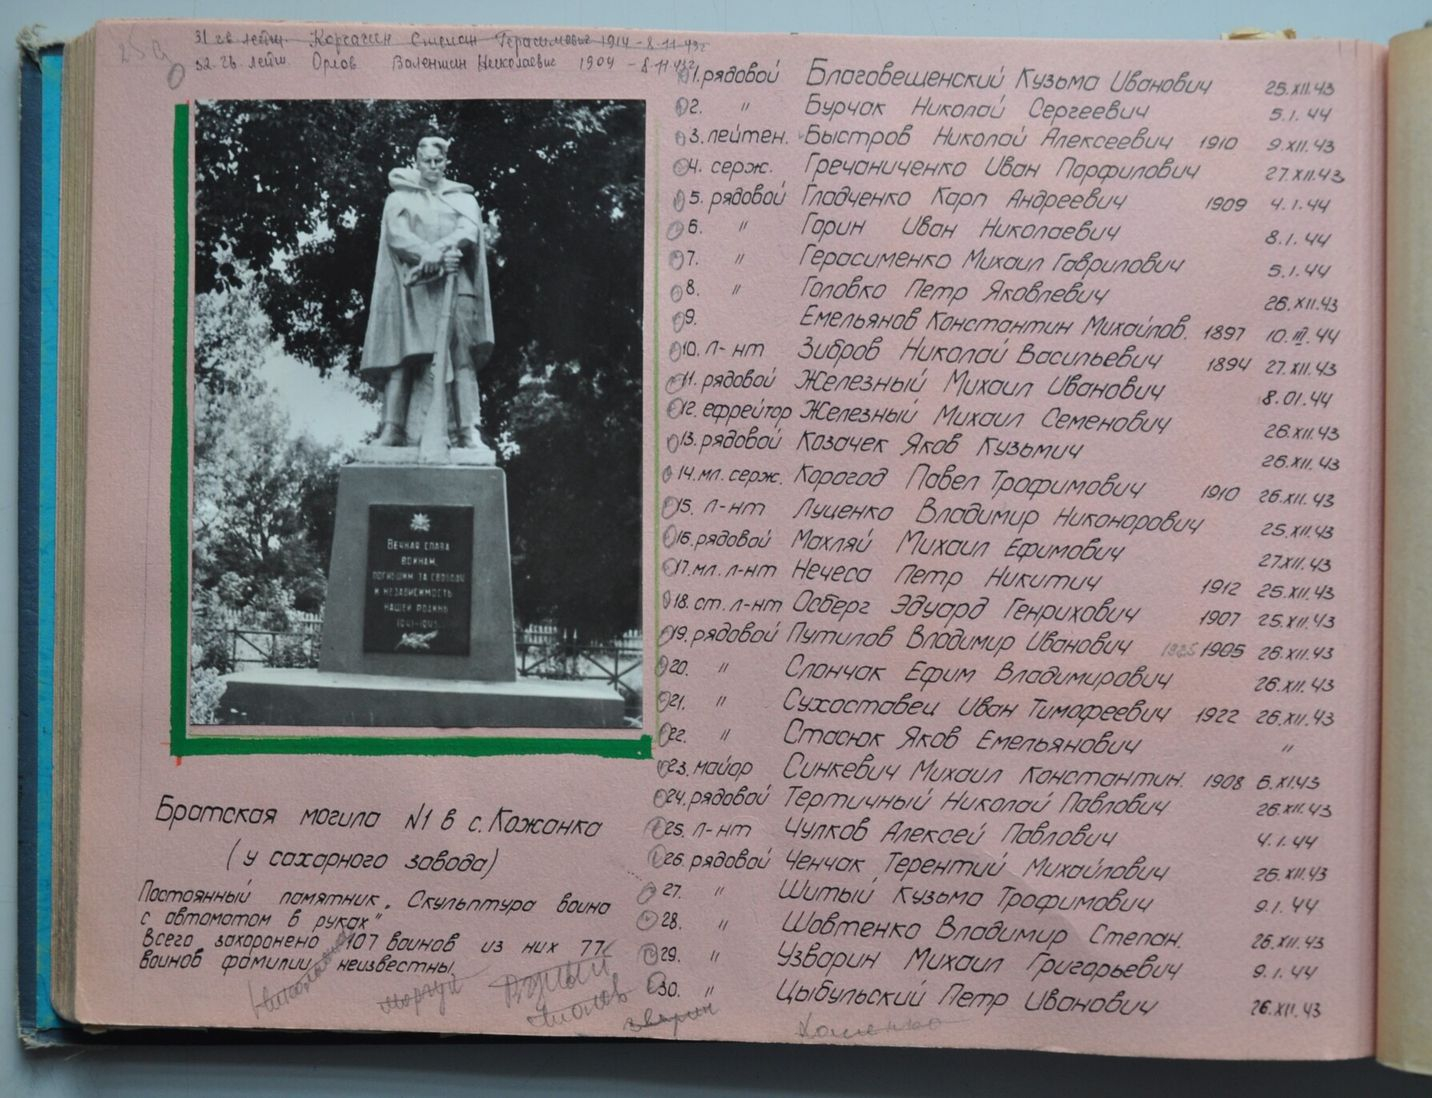 31 гв. лейт. Корсакин Степан Герасимович 1914 - 8.11.43г
32 гв. лейт. Орлов Валентин Николаевич 1904 - 8.11.43г
1. рядовой Благовещенский Кузьма Иванович 25.XII.43
2. " Бурчак Николай Сергеевич 5.1.44
3. лейтен. Быстров Николай Алексеевич 1910 9.XII.43
4. серж. Гречаниченко Иван Парфилович 27.XII.43
5. рядовой Гладченко Карп Андреевич 1909 4.1.44
6. " Горин Иван Николаевич 8.1.44
7. " Герасименко Михаил Гаврилович 5.1.44
8. " Головко Петр Яковлевич 26.XII.43
9. Емельянов Константин Михайлов. 1897 10.III.44
10. л-нт Зибров Николай Васильевич 1894 27.XII.43
11. рядовой Железный Михаил Иванович 8.01.44
12. ефрейтор Железный Михаил Семенович 26.XII.43
13. рядовой Козачек Яков Кузьмич 26.XII.43
14. мл. серж. Корогод Павел Трофимович 1910 26.XII.43
15. л-нт Луценко Владимир Никонорович 25.XII.43
16. рядовой Махляй Михаил Ефимович 27.XII.43
17. мл. л-нт Нечеса Петр Никитич 1912 25.XII.43
18. ст. л-нт Осберг Эдуард Генрихович 1907 25.XII.43
19. рядовой Путилов Владимир Иванович 1925 1905 26.XII.43
20. " Слончак Ефим Владимирович 26.XII.43
21. " Сухоставец Иван Тимофеевич 1922 26.XII.43
22. " Стасюк Яков Емельянович "
23. майор Синкевич Михаил Константин. 1908 6.XI.43
24. рядовой Тертичный Николай Павлович 26.XII.43
25. л-нт Чулков Алексей Павлович 4.1.44
26. рядовой Ченчак Терентий Михайлович 26.XII.43
27. " Шитый Кузьма Трофимович 9.1.44
28. " Шовтенко Владимир Степан. 26.XII.43
29. " Узварин Михаил Григорьевич 9.1.44
30. " Цыбульский Петр Иванович 26.XII.43
Вечная слава
воинам,
погибшим за свободу
и независимость
нашей Родины
1941-1945
Братская могила №1 в с. Кожанка
(у сахарного завода)
Постоянный памятник „Скульптура воина
с автоматом в руках"
Всего захоронено 107 воинов из них 77
воинов фамилии неизвестны.